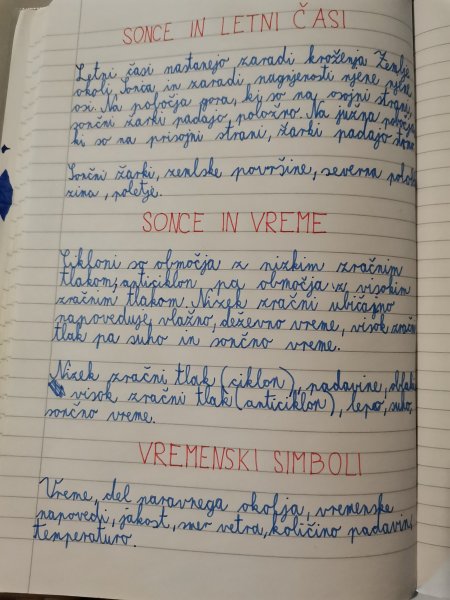 SONCE IN LETNI ČASI
Letni časi nastanejo zaradi kroženja Zemlje
okoli Sonca, in zaradi nagnjenosti njene njene
osi. Na pobočja gora, ki so na osojni strani,
sončni žarki padajo, položno. Na južna pobočja,
ki so na prisojni strani, žarki padajo strmo.
Sončni žarki, zemlske površine, severna polobla
zima, poletje.
SONCE IN VREME
Cikloni so območja z nizkim zračnim
tlakom, anticiklon pa območja z visokim
zračnim tlakom. Nizek zračni običajno
napoveduje vlažno, deževno vreme, visok zračni
tlak pa suho in sončno vreme.
Nizek zračni tlak (ciklon), padavine, oblaki
visok zračni tlak (anticiklon), lepo, suho,
sončno vreme.
VREMENSKI SIMBOLI
Vreme, del naravnega okolja, vremenske
napovedi, jakost, smer vetra, količino padavin,
temperaturo.